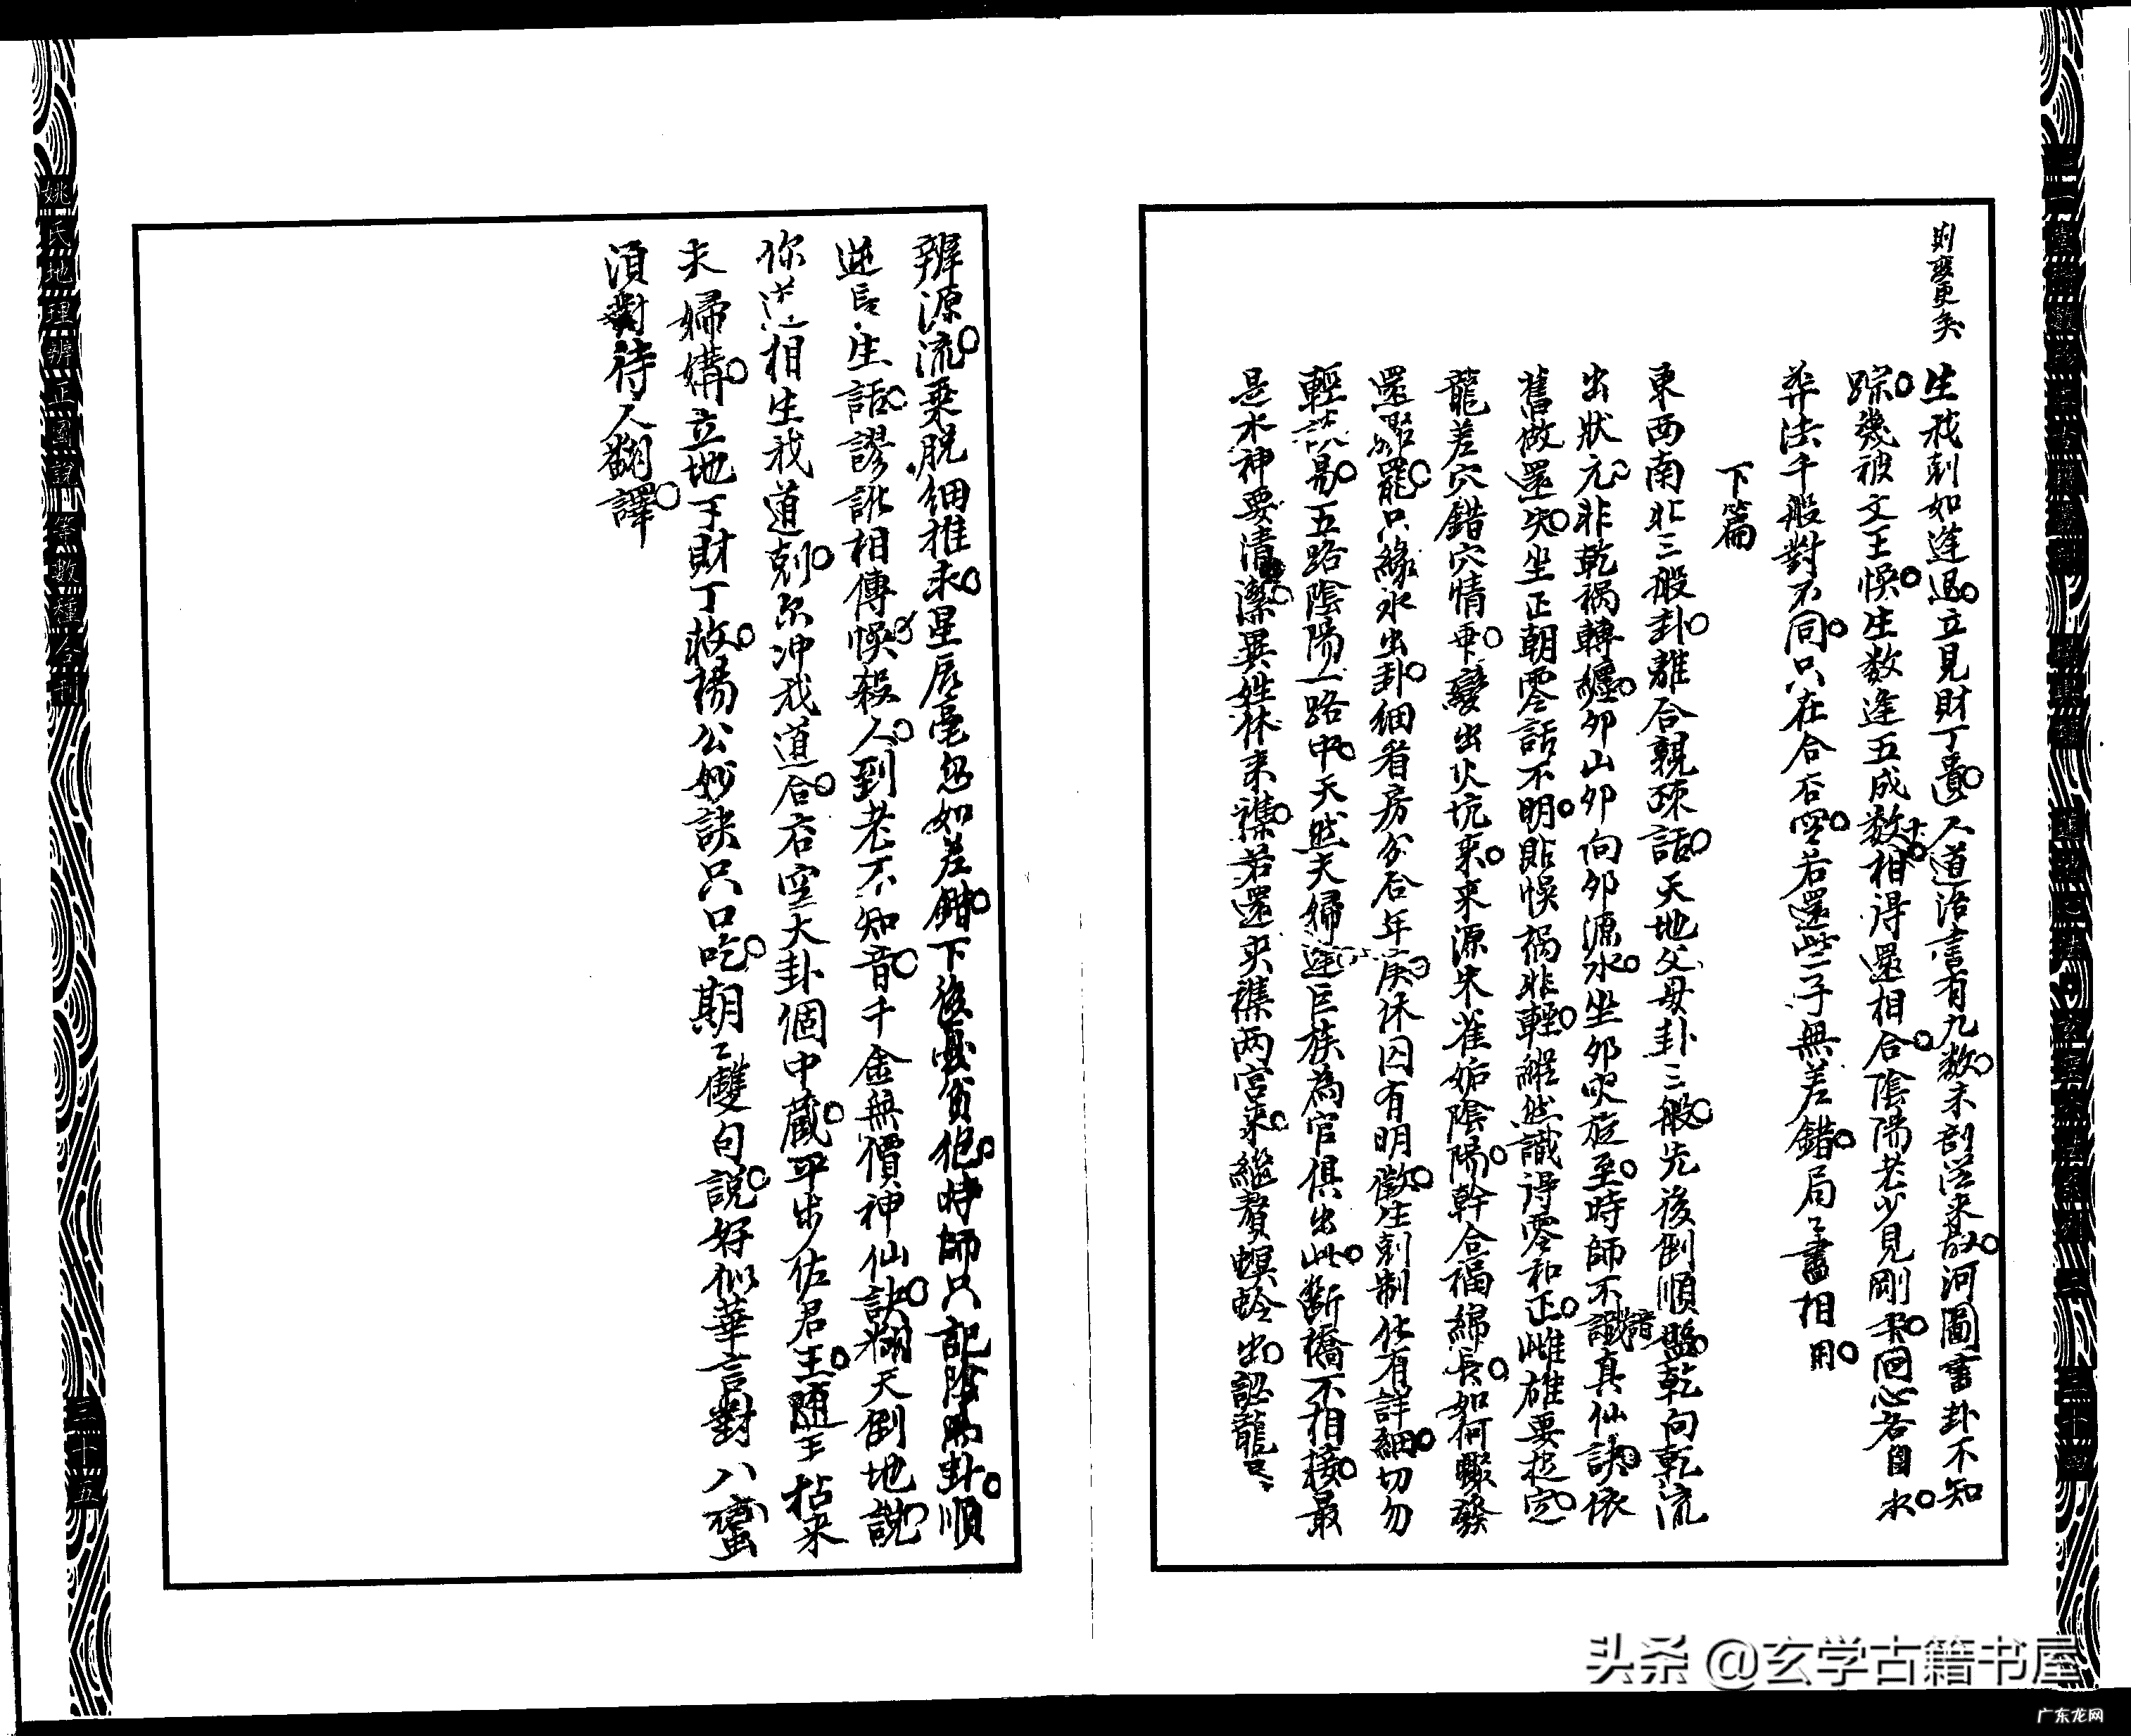 則變更矣
生我剋如逢退立見財丁遺人道洛書有九數未剖從來散河圖書卦不知
踪幾被文王悞生数逢五成数十相得還相合陰陽老少見剛柔回心若自水
葬法千般對不同只在合否空若還些子無差錯局〻盡相用
下篇
東西南北三般卦離合親疎話天地父母卦三般先後倒順盤乾向乾流
出狀元非乾禍轉纏卯山卯向卯源水坐卯吹旋至時師不識諳真仙訣依
舊做還失坐正朝零話不明貽悞禍非輕縱然識得零和正雌雄要挨定
龍差穴錯穴情乖變出火坑來來源朱雀妬陰陽幹合福綿長如何驟發
還驟罷只緣水出卦細看房分合年庚休囚有明徵生剋制化有詳細切勿
輕談易五路陰陽一路中天然夫婦逢巨族為官俱出此斷橋不相接最
是水神要清潔異姓休來襍若還夾襍两宮來繼贅螟蛉出認龍〻
辨源流乗脱細推求星辰毫忽如差錯下後憂貧犯時師只記陰陽卦順
逆長生話謬訛相傳悞殺人到老不知音千金無價神仙訣翻天倒地說
你迸相生我道剋尔冲我道合右空大卦個中藏平步佐君王随手拈来
夫婦媾立地丁財丁救楊公妙訣只口吃期〻雙句說好似華言對八蠻
須對待人翻譯
姚氏地理辨正圖說
等数種合刊
三十五
三十四
头条 @玄学古籍书屋
广东龙网